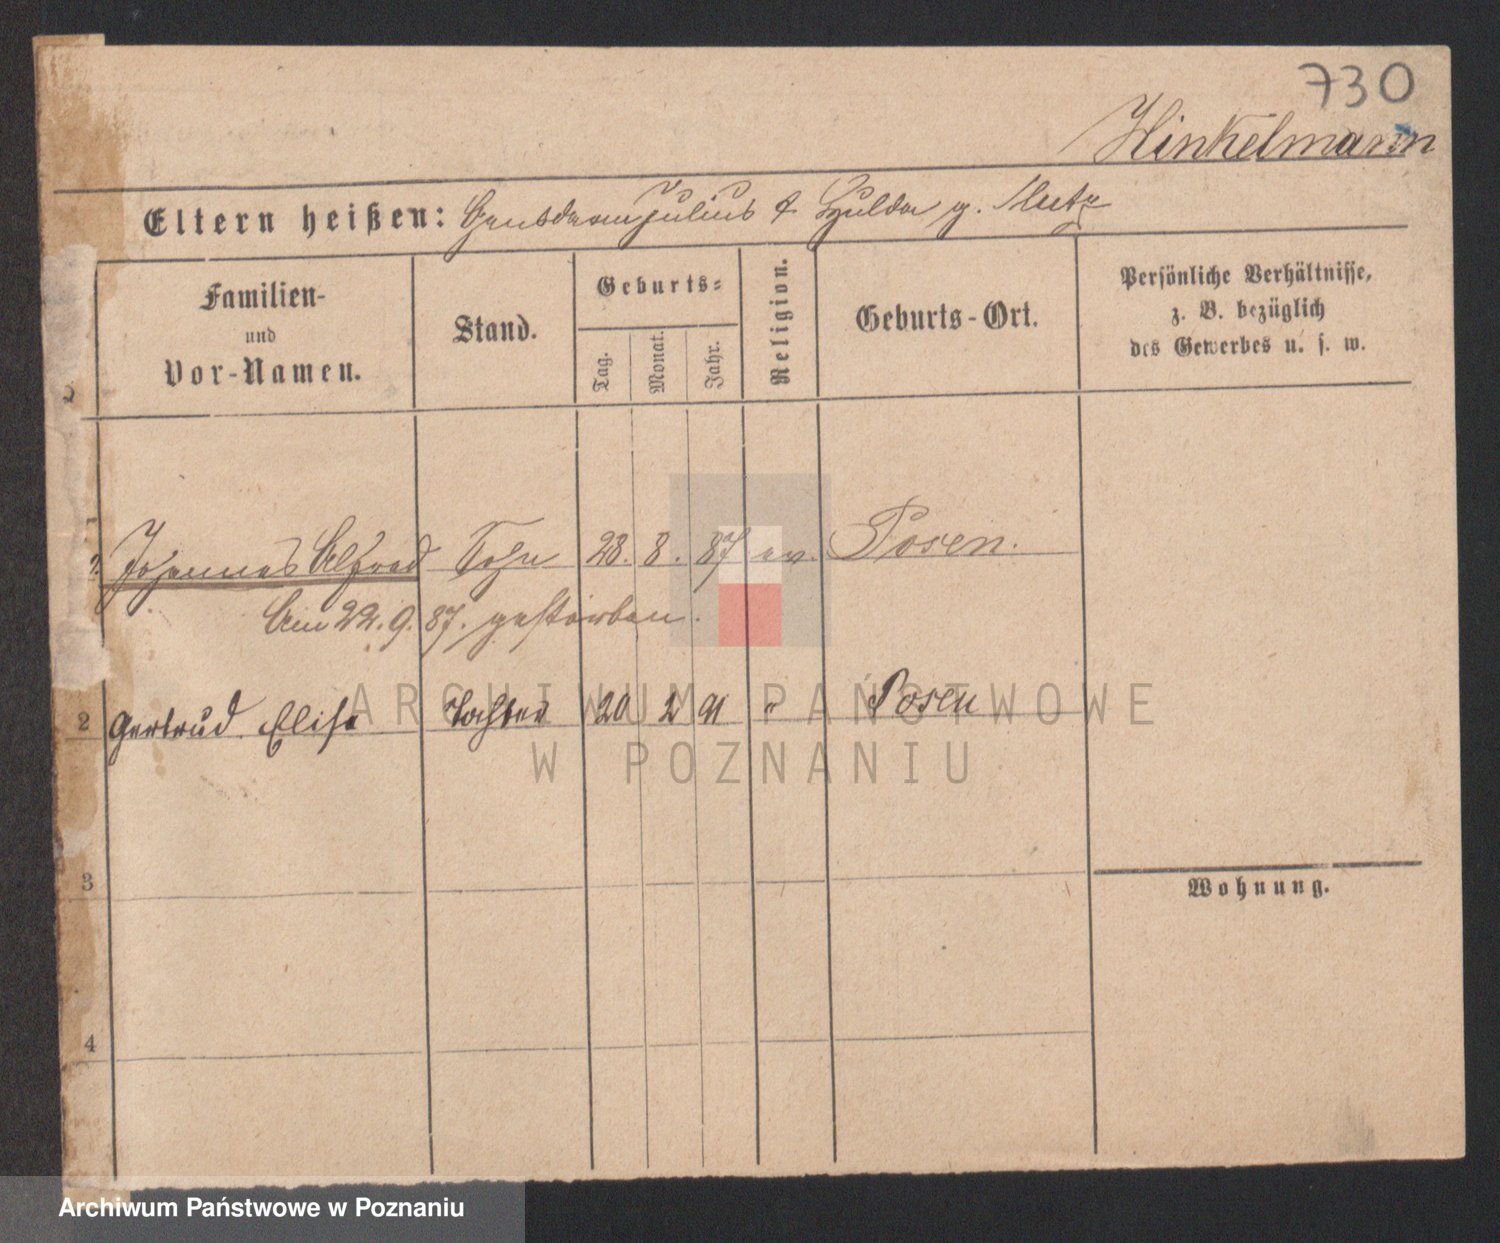 730
Hinkelmann
Eltern heißen: Gensdarm Julius & Hulda g. Mutz
Familien-
und
Vor-Namen.
Stand.
Geburts-
Tag.
Monat.
Jahr.
Religion.
Geburts-Ort.
Persönliche Verhältnisse,
z. B. bezüglich
des Gewerbes u. s. w.
Johannes Alfred Sohn 28. 8. 87 ev. Posen.
Am 22.9.87. gestorben.
2 Gertrud Elise Tochter 20 2 91 " Posen
3
Wohnung.
4
ARCHIWUM PAŃSTWOWE
W POZNANIU
Archiwum Państwowe w Poznaniu